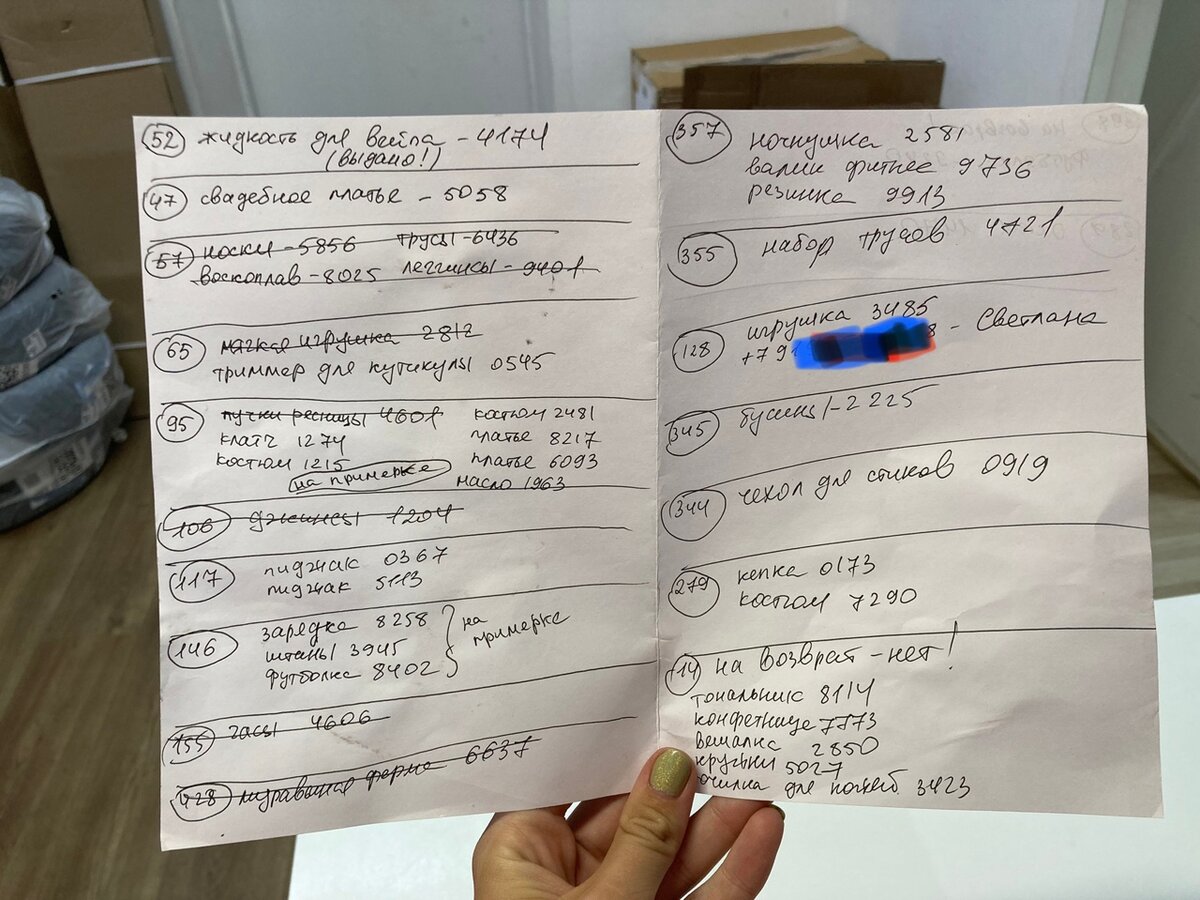 52 жидкость для вейпа - 4174
(выдано!)
47 свадебное платье - 5058
57 носки - 5856 трусы - 6436
воскоплав - 8025 леггинсы - 9401
65 мягкая игрушка 2812
триммер для кутикулы 0545
95 пучки ресницы 4601 костюм 2481
клатч 1274 платье 8217
костюм 1215 платье 6093
на примерке масло 1963
106 джинсы 1204
117 пиджак 0367
пиджак 5113
146 зарядка 8258
штаны 3945
футболка 8402
на примерке
155 часы 4606
728 муравьиная ферма 6637
357 ночнушка 2581
валик фитнес 9736
резинка 9913
355 набор трусов 4721
128 игрушка 3485
+79 8 - Светлана
345 бусины - 2225
344 чехол для стиков 0919
279 кепка 0173
костюм 7290
14 на возврат - нет!
тональник 8114
конфетница 7773
вешалка 2850
5027
для ножей 3423